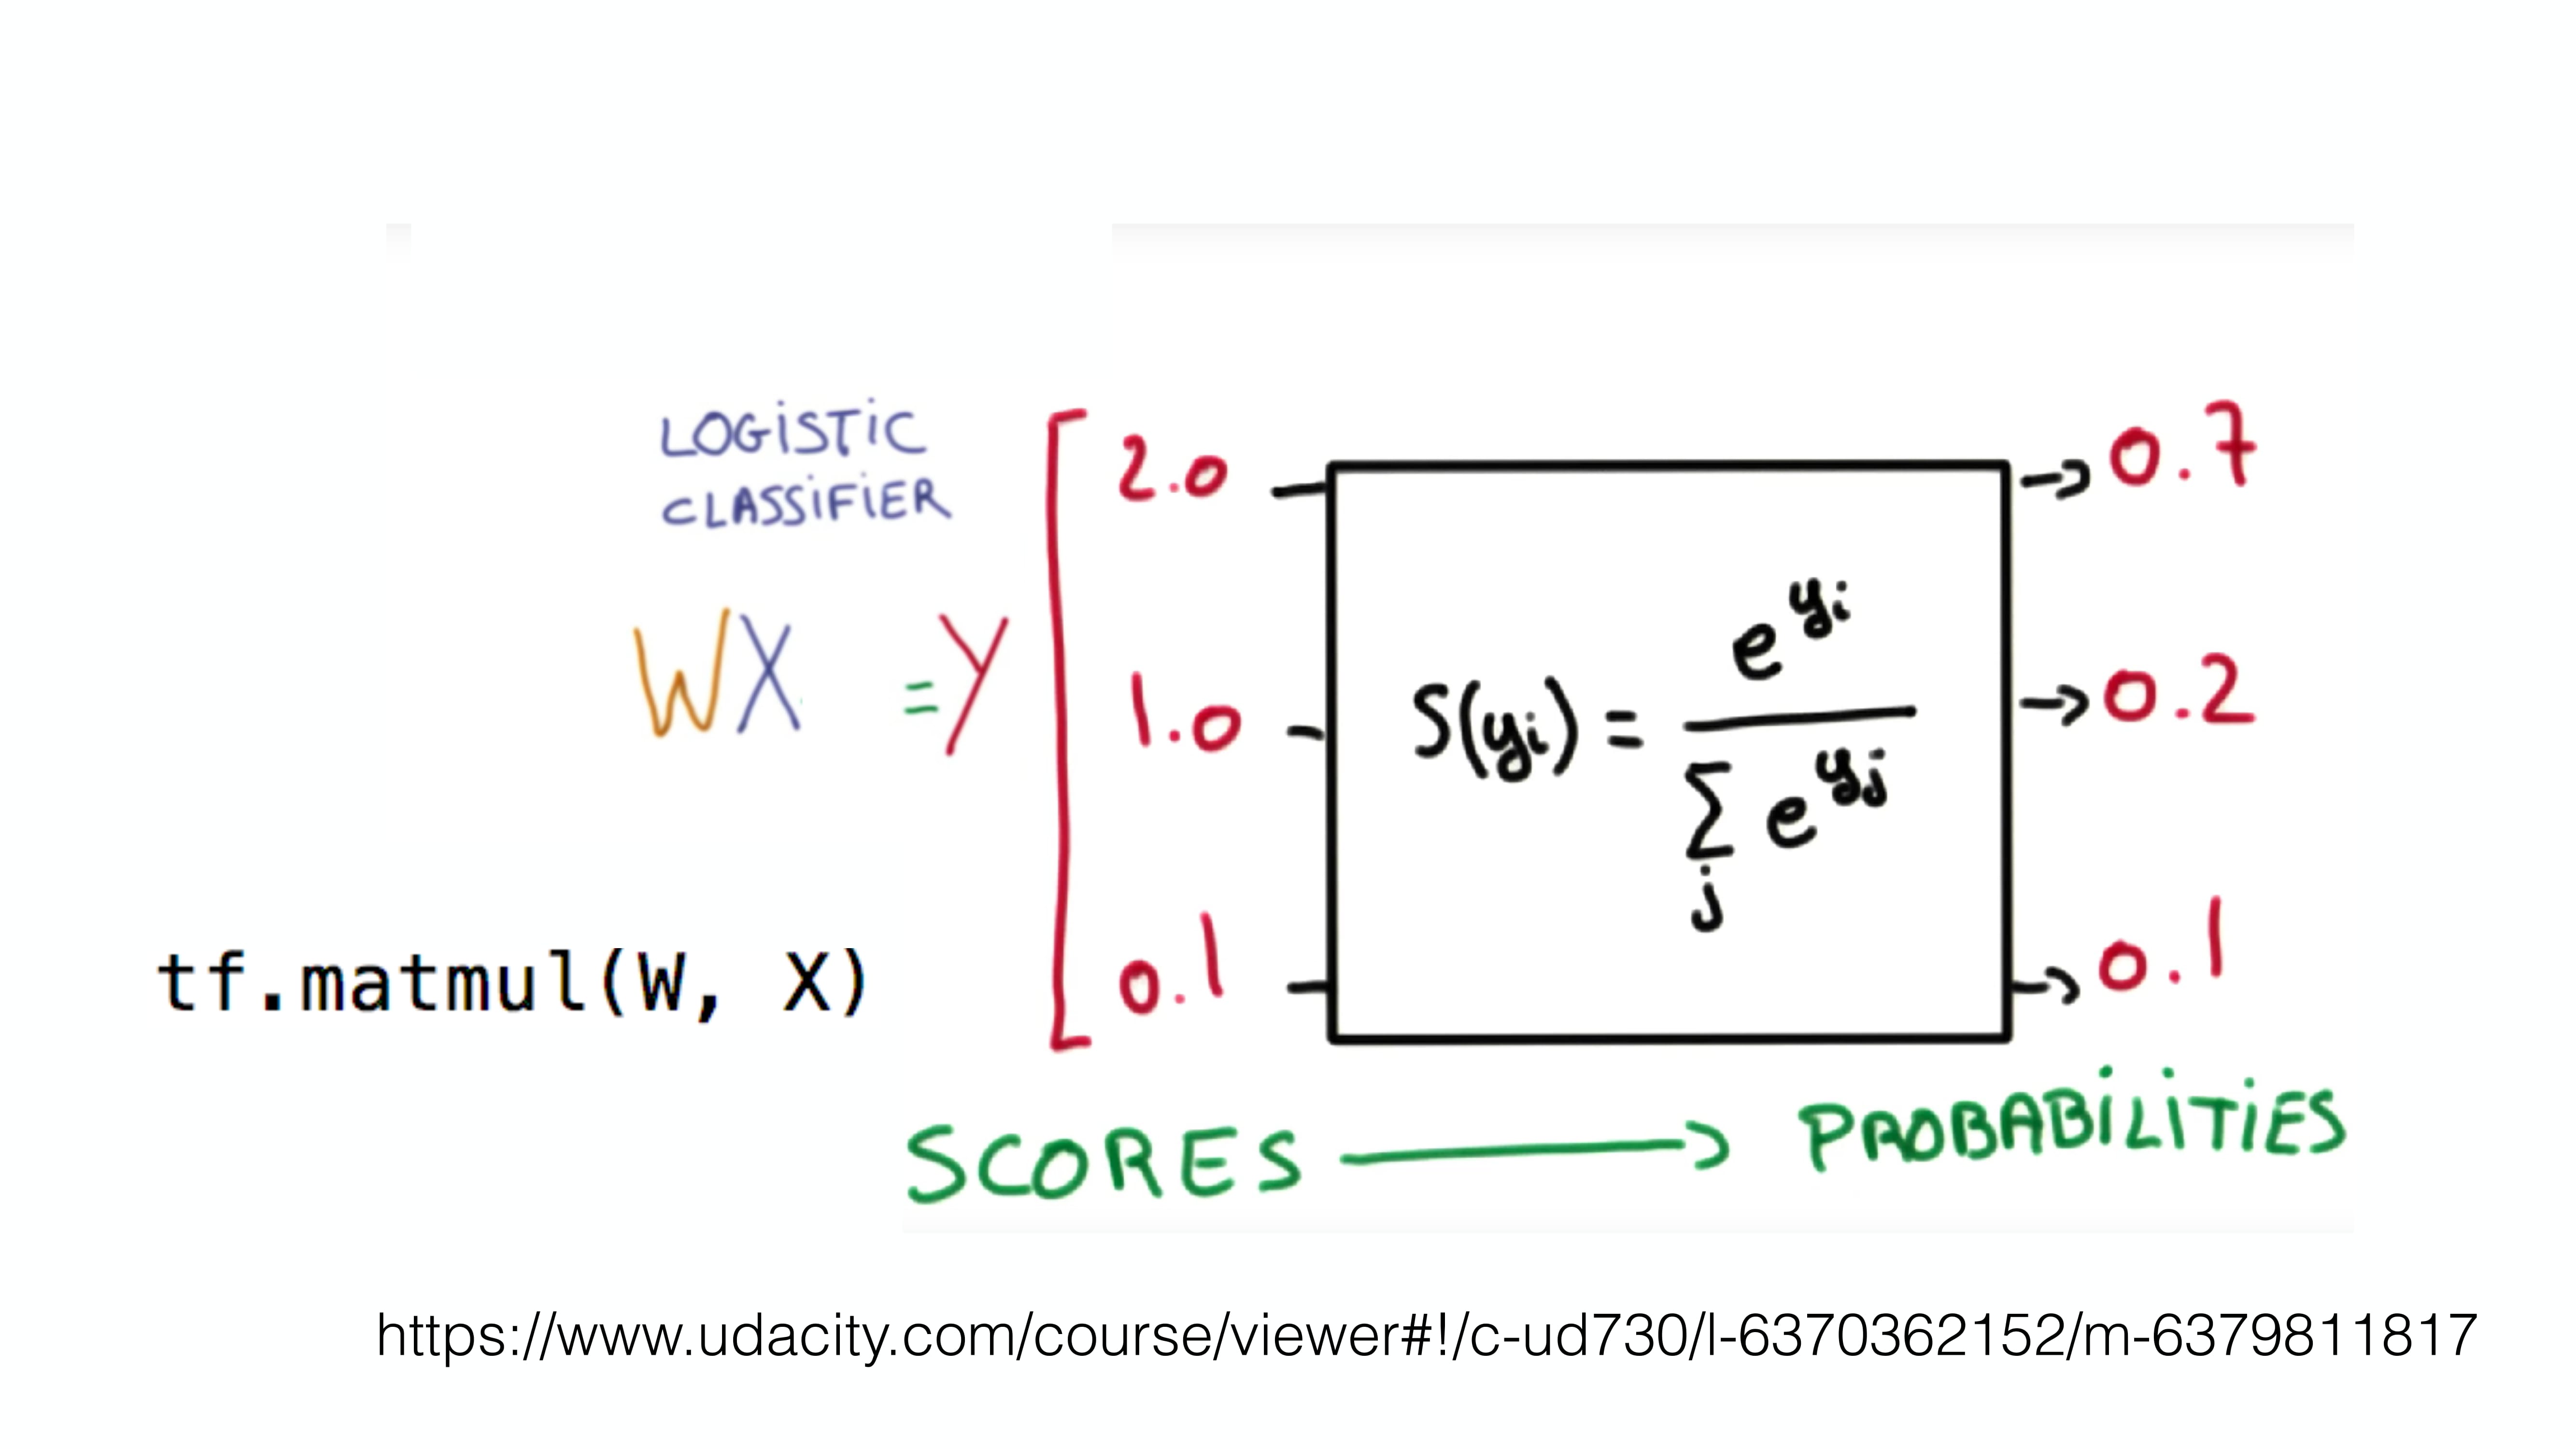 LOGiSTiC
CLASSiFiER
WX = Y
2.0
1.0
0.1
S(yi) = e^yi / Σj e^yj
0.7
0.2
0.1
tf.matmul(W, X)
SCORES → PROBABiLiTiES
https://www.udacity.com/course/viewer#!/c-ud730/l-6370362152/m-6379811817